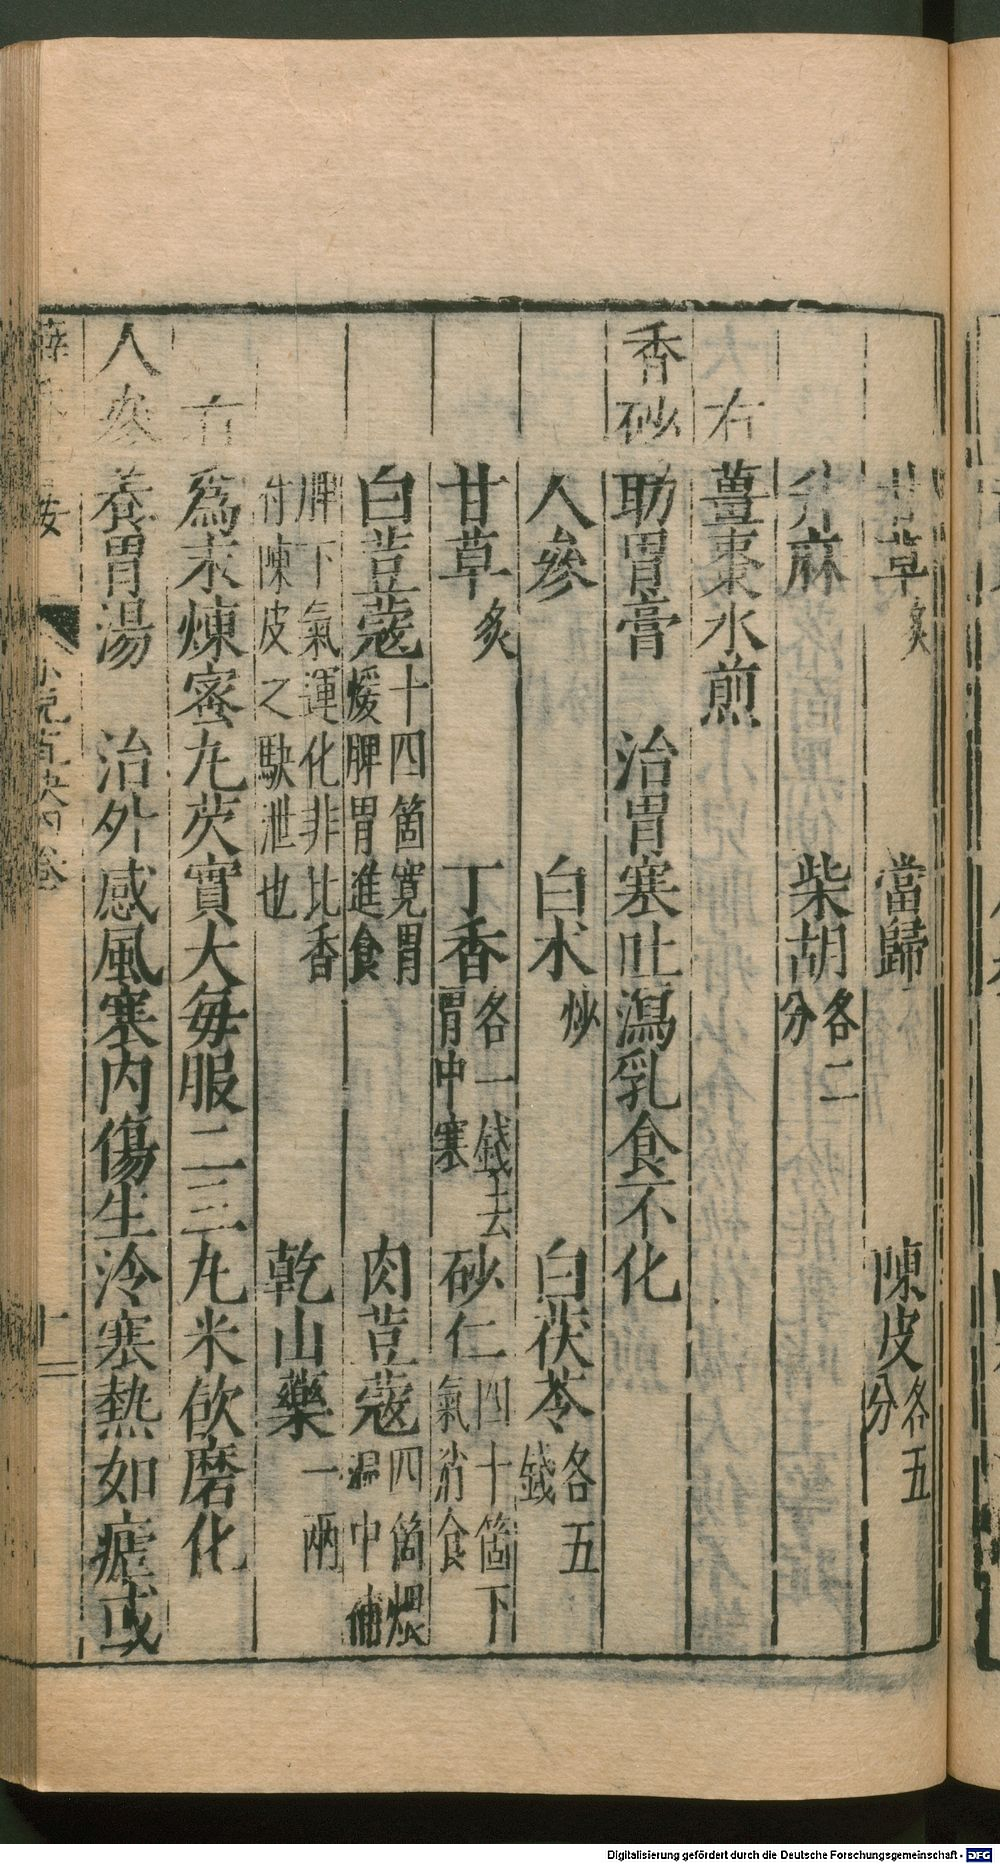 甘草炙　當歸　陳皮各五分
升麻　柴胡各二分
右薑棗水煎
香砂助胃膏　治胃寒吐瀉乳食不化
人參　白术炒　白茯苓各五錢
甘草炙　丁香各一錢去胃中寒　砂仁四十箇下氣消食
白荳蔻十四箇寬胃煖脾胃進食　肉荳蔻四箇煨温中補
脾下氣運化非比香附陳皮之駃泄也　乾山藥一兩
右爲末煉蜜丸芡實大每服二三丸米飲磨化
人參養胃湯　治外感風寒内傷生冷寒熱如瘧或
薛　按　小兒直訣四卷　十二
Digitalisierung gefördert durch die Deutsche Forschungsgemeinschaft - DFG